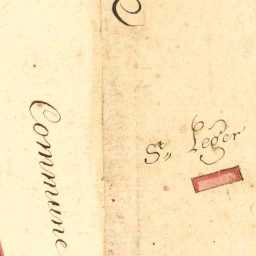 Commune
St,, Leger